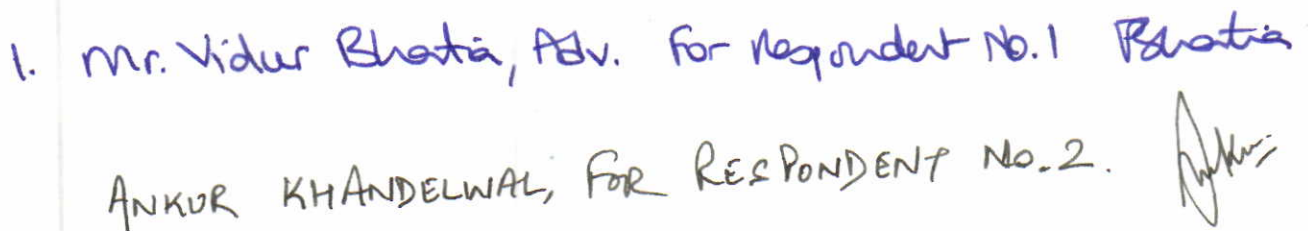 1. Mr. Vidur Bhatia, Adv. For Respondent No.1 Bhatia
ANKUR KHANDELWAL, FOR RESPONDENT No.2. Ankur